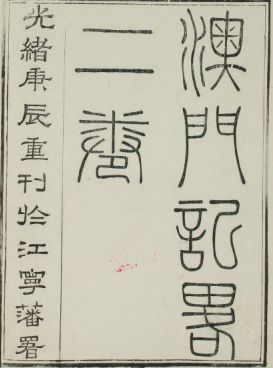 澳門記畧
二卷
光緒庚辰重刊於江寧藩署